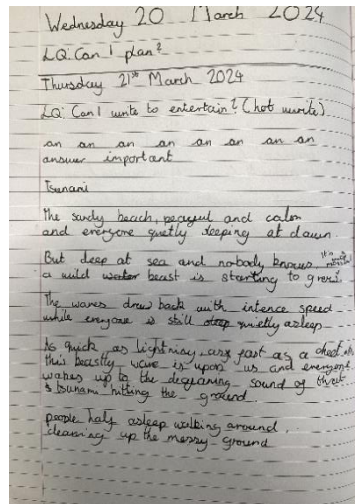 Wednesday 20 March 2024
LQ: Can I plan?
Thursday 21st March 2024
LQ: Can I write to entertain? (hot write)
an an an an an an an
answer important
Tsunami
The sandy beach, peaceful and calm
and everyone quietly sleeping at dawn.
But deep at sea and nobody knows,
a wild water beast is starting to
The waves draw back with intence speed
while everyone is still sleep quietly asleep.
As quick as lightning, as fast as a
this beastly wave is upon us and everyone
wakes up to the sound of
a tsunami hitting the ground.
people half asleep walking around,
cleaning up the messy ground